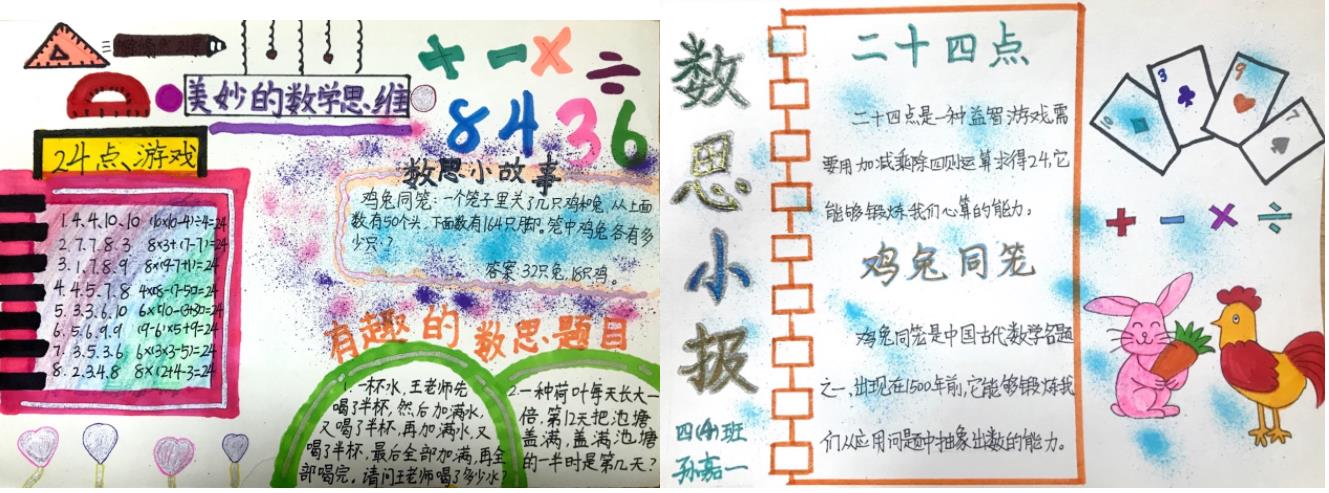 美妙的数学思维
+ - × ÷
8 4 3 6
24点游戏
1. 4、4、10、10 (10×10-4)÷4=24
2. 7、7、8、3 8×3+(7-7)=24
3. 1、7、8、9 8×(9-7+1)=24
4. 4、4、5、7、8
5. 3、3、6、10
6. 5、6、9、9 (9-6)×5+9=24
7. 3、5、3、6 6×(3×3-5)=24
8. 2、3、4、8 8×(2+4-3=24
数思小故事
鸡兔同笼:一个笼子里关了几只鸡和兔,从上面
数有50个头,下面数有164只脚。笼中鸡兔各有多
少只?
答案:32只兔,18只鸡。
有趣的数思题目
1.一杯水,王老师先
喝了半杯,然后加满水,
又喝了半杯,再加满水,又
喝了半杯,最后全部加满,再全
部喝完。请问王老师喝了多少水?
2.一种荷叶每天长大一
倍。第12天把池塘
盖满,盖满池塘
的一半时是第几天?
数思小报
四(4)班
孙嘉一
二十四点
二十四点是一种益智游戏需
要用加减乘除四则运算求得24,它
能够锻炼我们心算的能力。
鸡兔同笼
鸡兔同笼是中国古代数学名题
之一,出现在1500年前,它能够锻炼我
们从应用问题中抽象出数的能力。
10
3
9
7
+ - × ÷